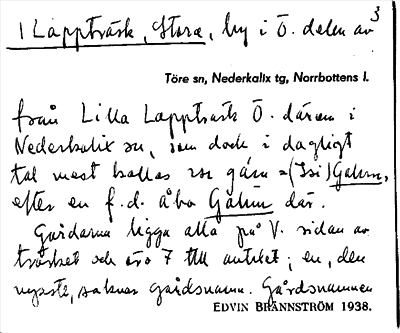 1 Lappträsk, Stora, by i Ö. delen av 3
Töre sn, Nederkalix tg, Norrbottens l.
från Lilla Lappträsk Ö. därom i
Nederkalix sn, som dock i dagligt
tal mest kallas
efter en f.d. åbo Galin där.
Gårdarna ligga alla på V. sidan av
träsket och äro 7 till antalet; en, den
nyaste, saknar gårdsnamn. Gårdsnamnen
EDVIN BRÄNNSTRÖM 1938.